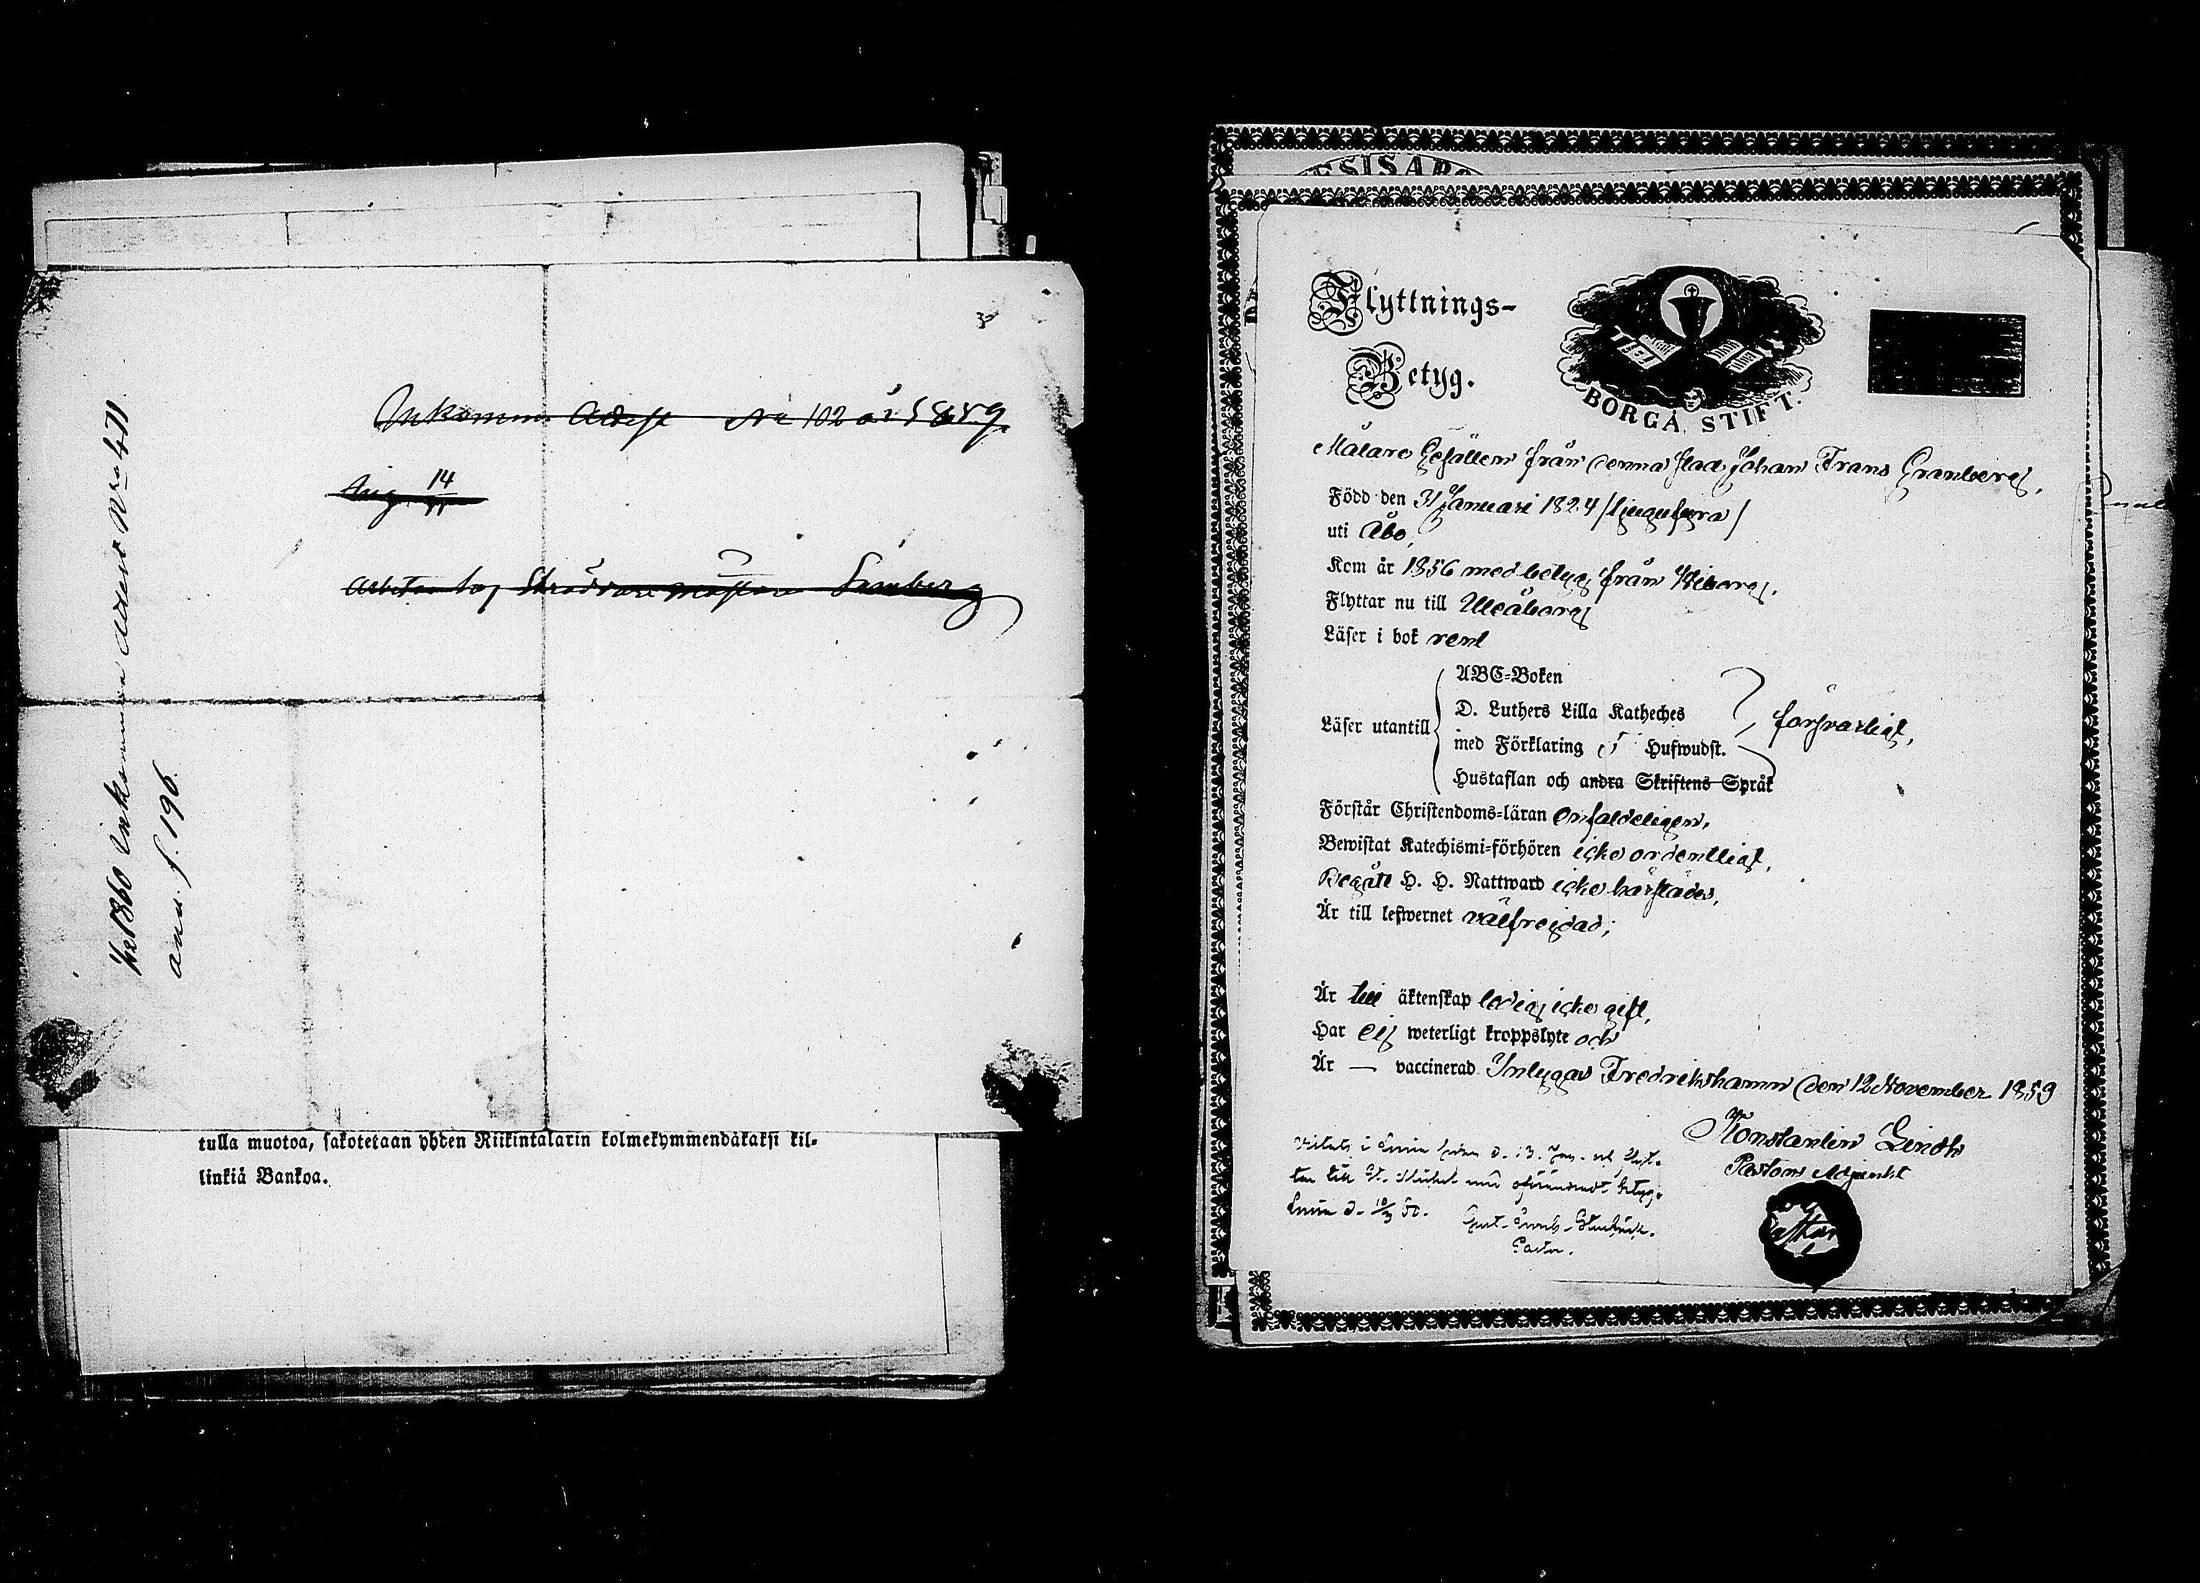 Inkomm. Attest No 102 år 1859.
Aug. 14
Arbetar hos Skräddare mästare Lamberg
1860 Inkomna Attest Nro 471
ann. f. 196.
tulla muotoa, sakotetaan yhden Riikintalarin kolmekymmendäkaksi kil-
linkiä Bankoa.
Flyttnings-
Betyg.
BORGÅ STIFT.
Målare Gesällen från denna stad Johan Frans Granberg,
Född den 31 Januari 1824 /tjugufyra/
uti Åbo,
Kom år 1856 med betyg från Wiborg,
Flyttar nu till Uleåborg
Läser i bok rent
ABC-Boken
D. Luthers Lilla Katheches
Läser utantill
med Förklaring 5 Hufwudst.
försvarligt,
Hustaflan och andra Skriftens Språk
Förstår Christendoms-läran enfaldeligen,
Bewistat Katechismi-förhören icke ordentligt,
Begått H. H. Nattward icke härstädes,
Är till lefwernet välfrejdad;
Är till äktenskap ledig, icke gift,
Har ej weterligt kroppslyte och
Är — vaccinerad. Intygas Fredrikshamn den 12 November 1859
Konstantin Lindh
Pastors Adjunkt